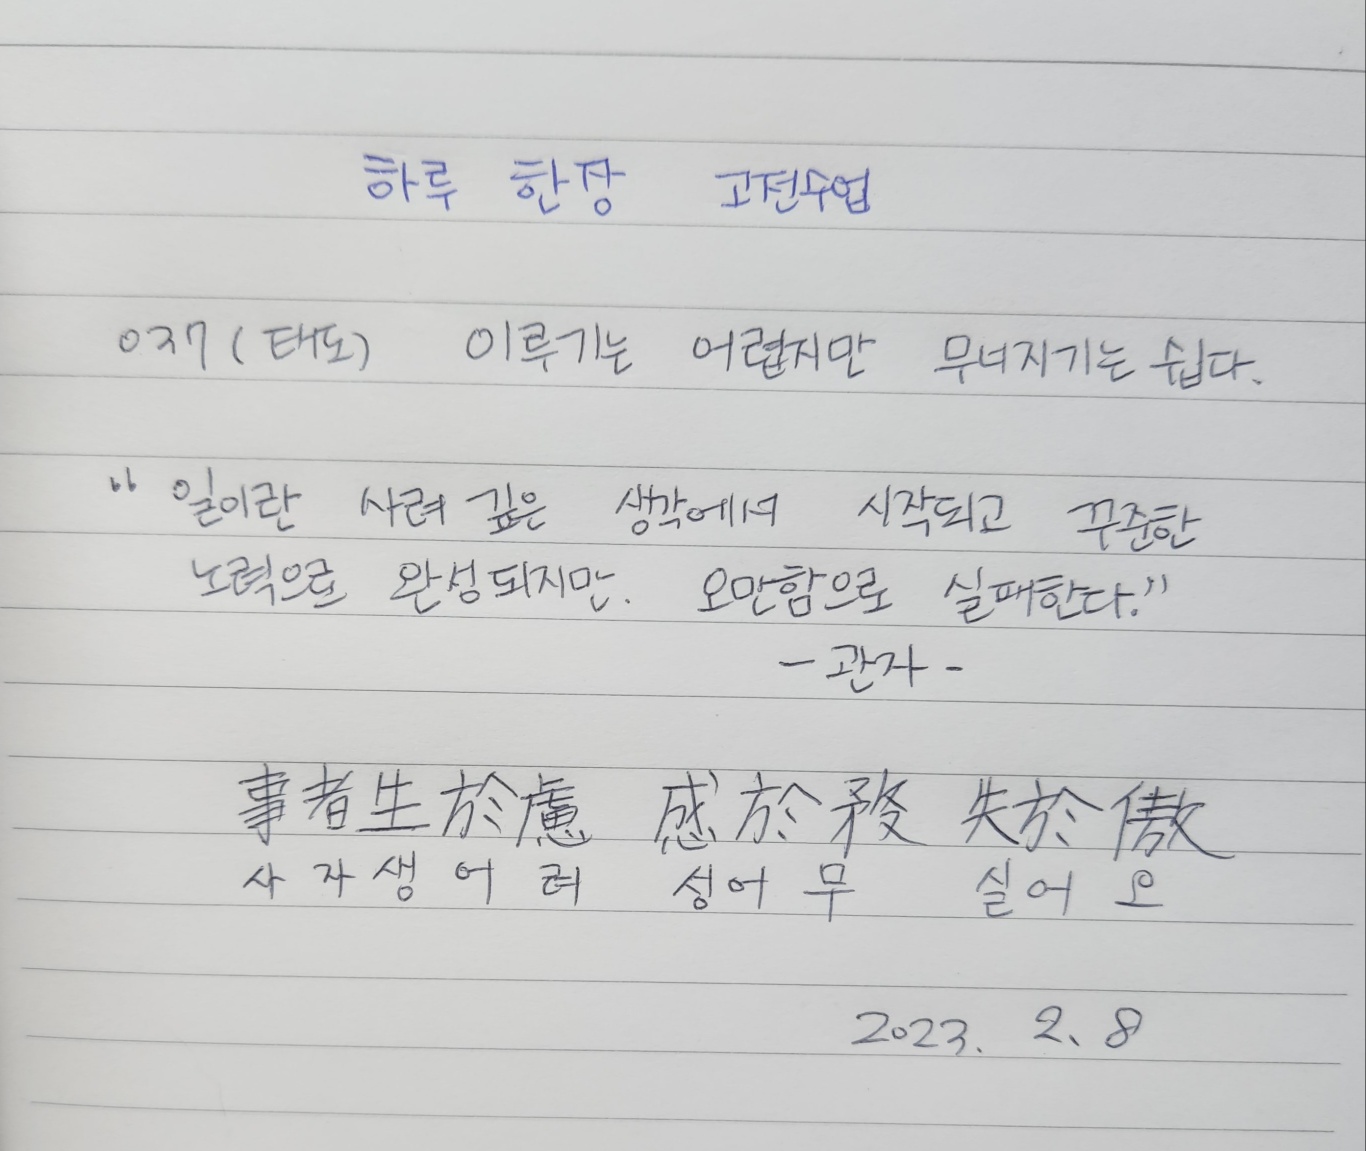 하루 한장 고전수업
037 (태도) 이루기는 어렵지만 무너지기는 쉽다.
“일이란 사려 깊은 생각에서 시작되고 꾸준한
노력으로 완성되지만. 오만함으로 실패한다.”
- 관자 -
事者生於慮 感於務 失於傲
사자생어려 성어무 실어오
2023. 2. 8